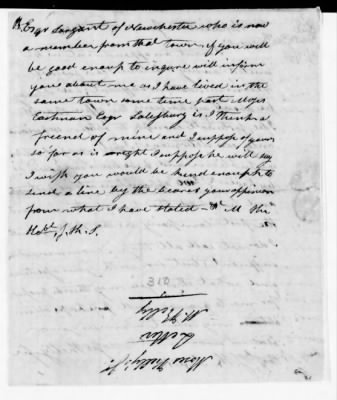 Esqr Sargant of Newchester who is now
a member from that town if you will
be good enoup to inqure will inform
you about me as I have lived in the
same town some time past Moses
Eastman Esqr Salesbury is I think a
freend of mine and I suppose of yours
so far as is wright I suppose he will say
I wish you would be kind enough to
send a line by the bearer your oppinion
from what I have stated
M
310
M. Kelly
Letter
Moses Kelly Jr.